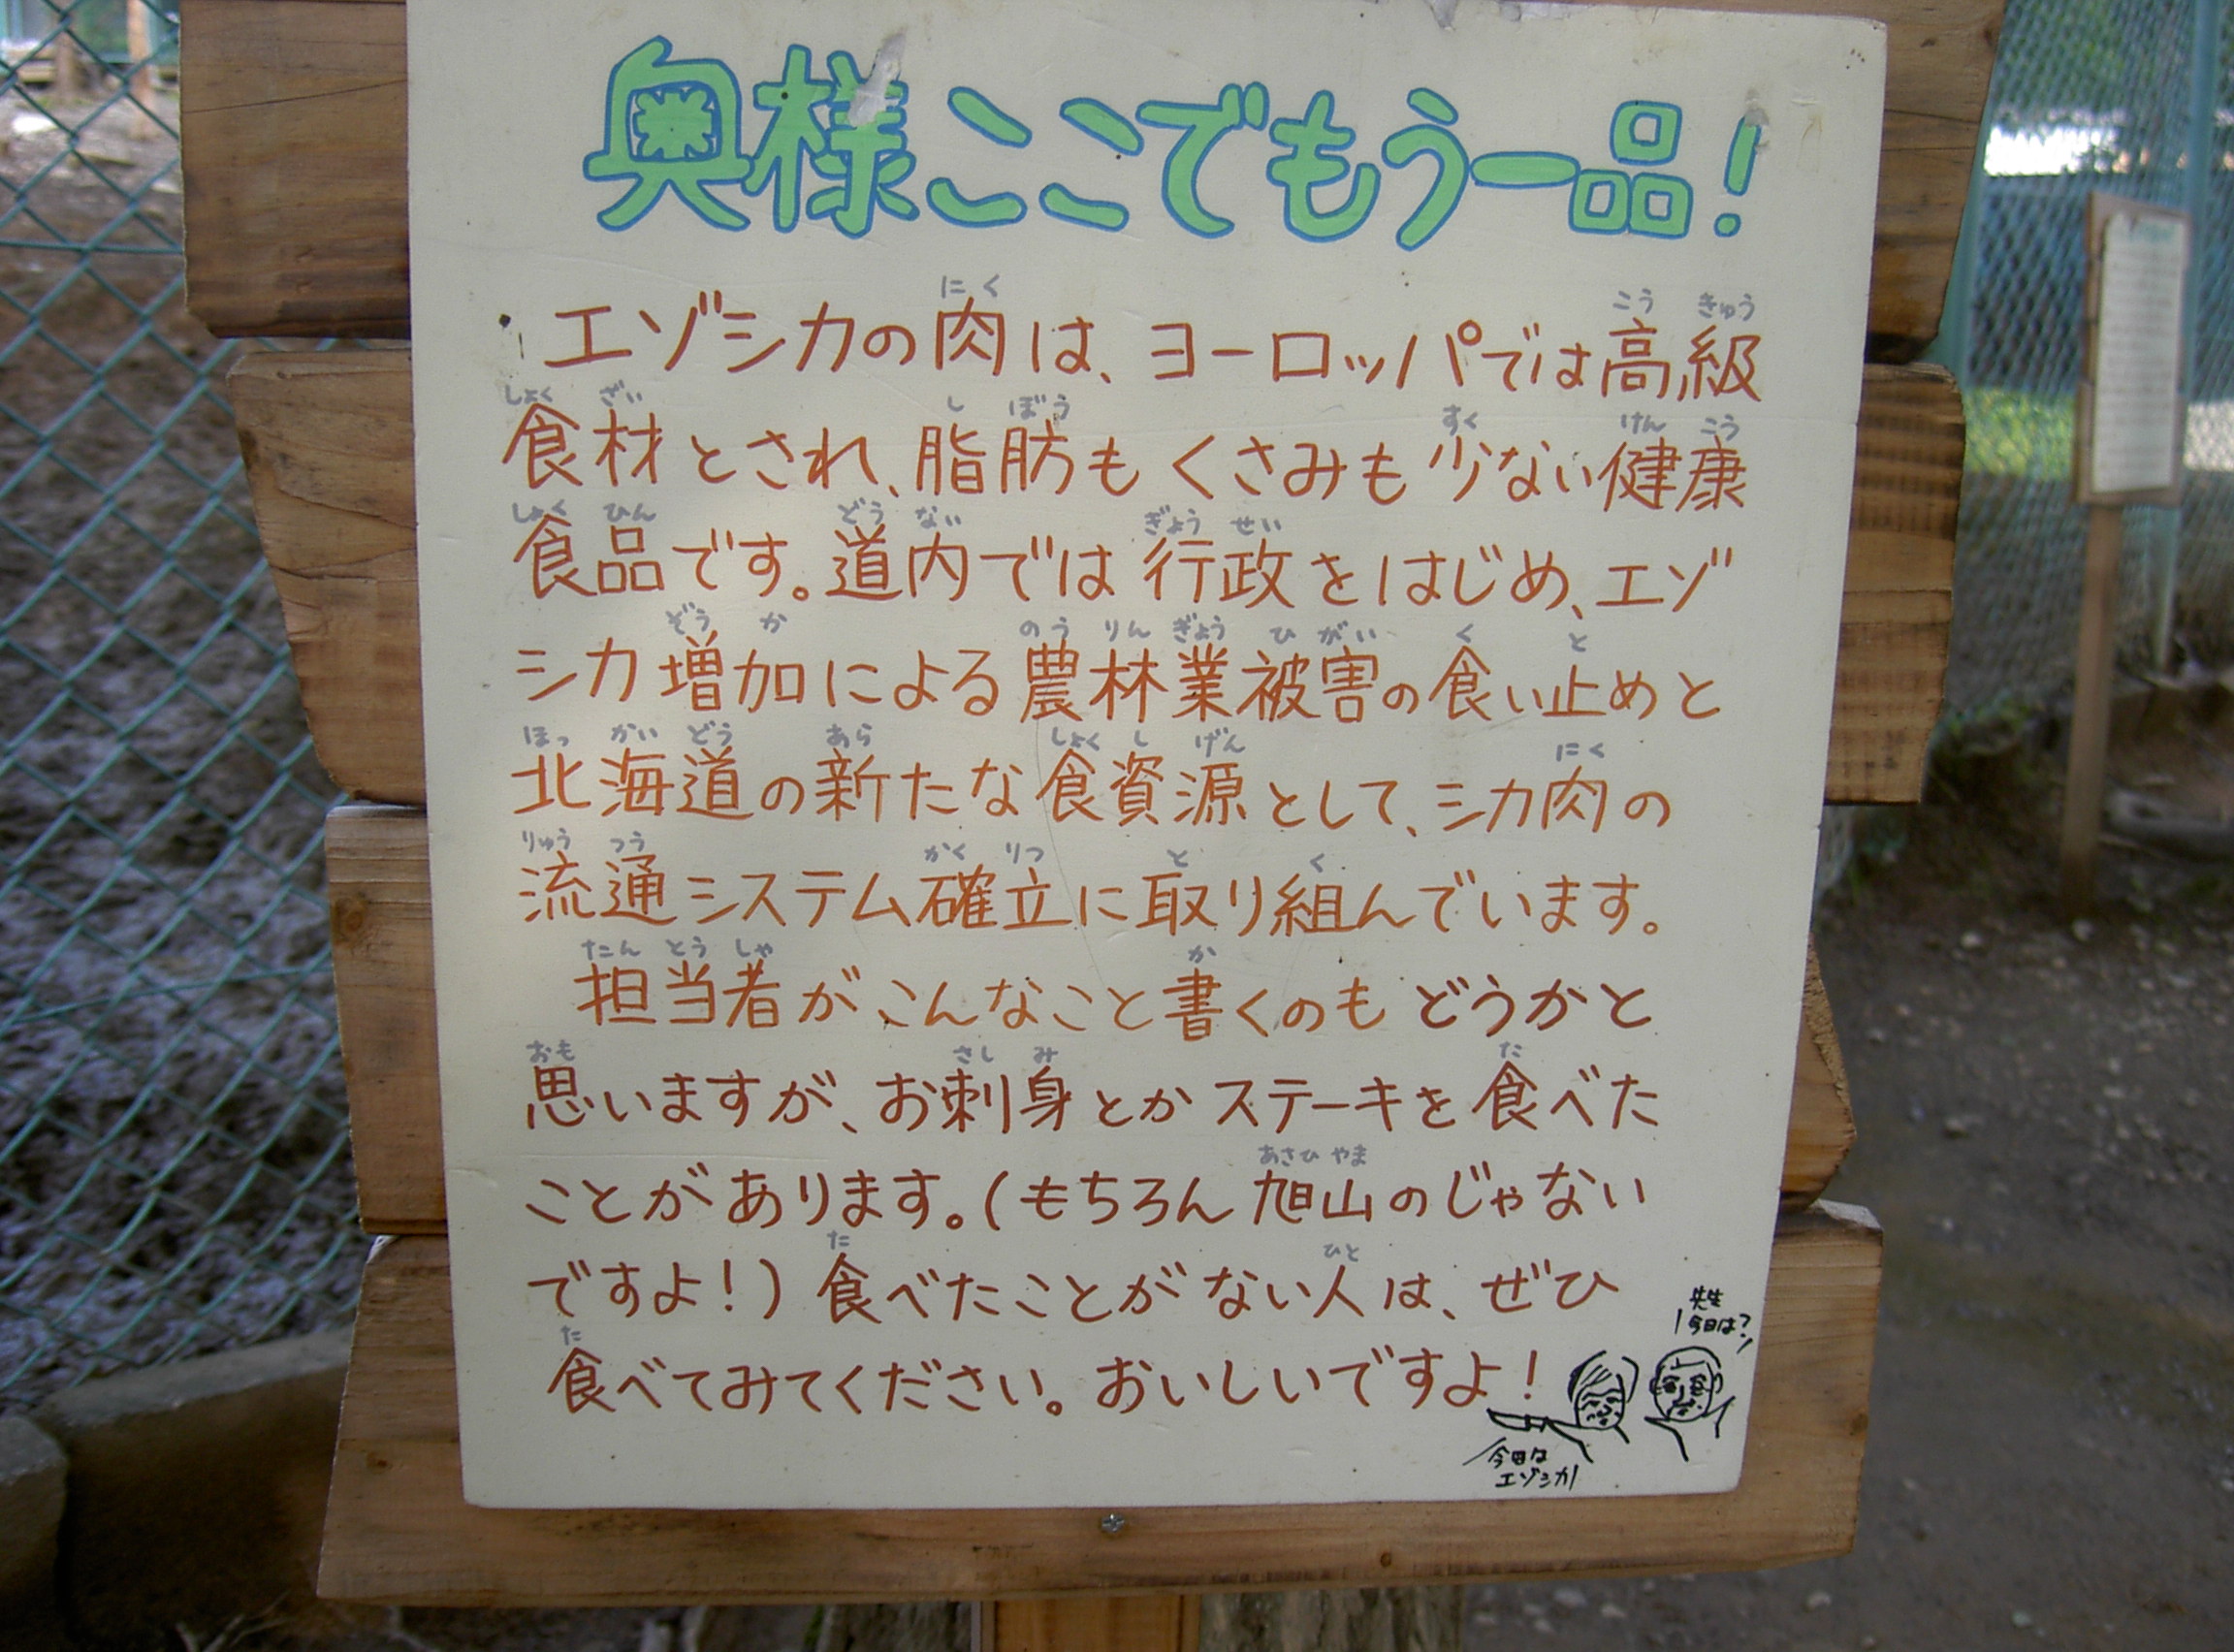 奥様ここでもう一品!
エゾシカの肉は、ヨーロッパでは高級
食材とされ、脂肪もくさみも少ない健康
食品です。道内では行政をはじめ、エゾ
シカ増加による農林業被害の食い止めと
北海道の新たな食資源として、シカ肉の
流通システム確立に取り組んでいます。
担当者がこんなこと書くのもどうかと
思いますが、お刺身とかステーキを食べた
ことがあります。(もちろん旭山のじゃない
ですよ!)食べたことがない人は、ぜひ
食べてみてください。おいしいですよ!
先生
今日は?
今日は
エゾシカ